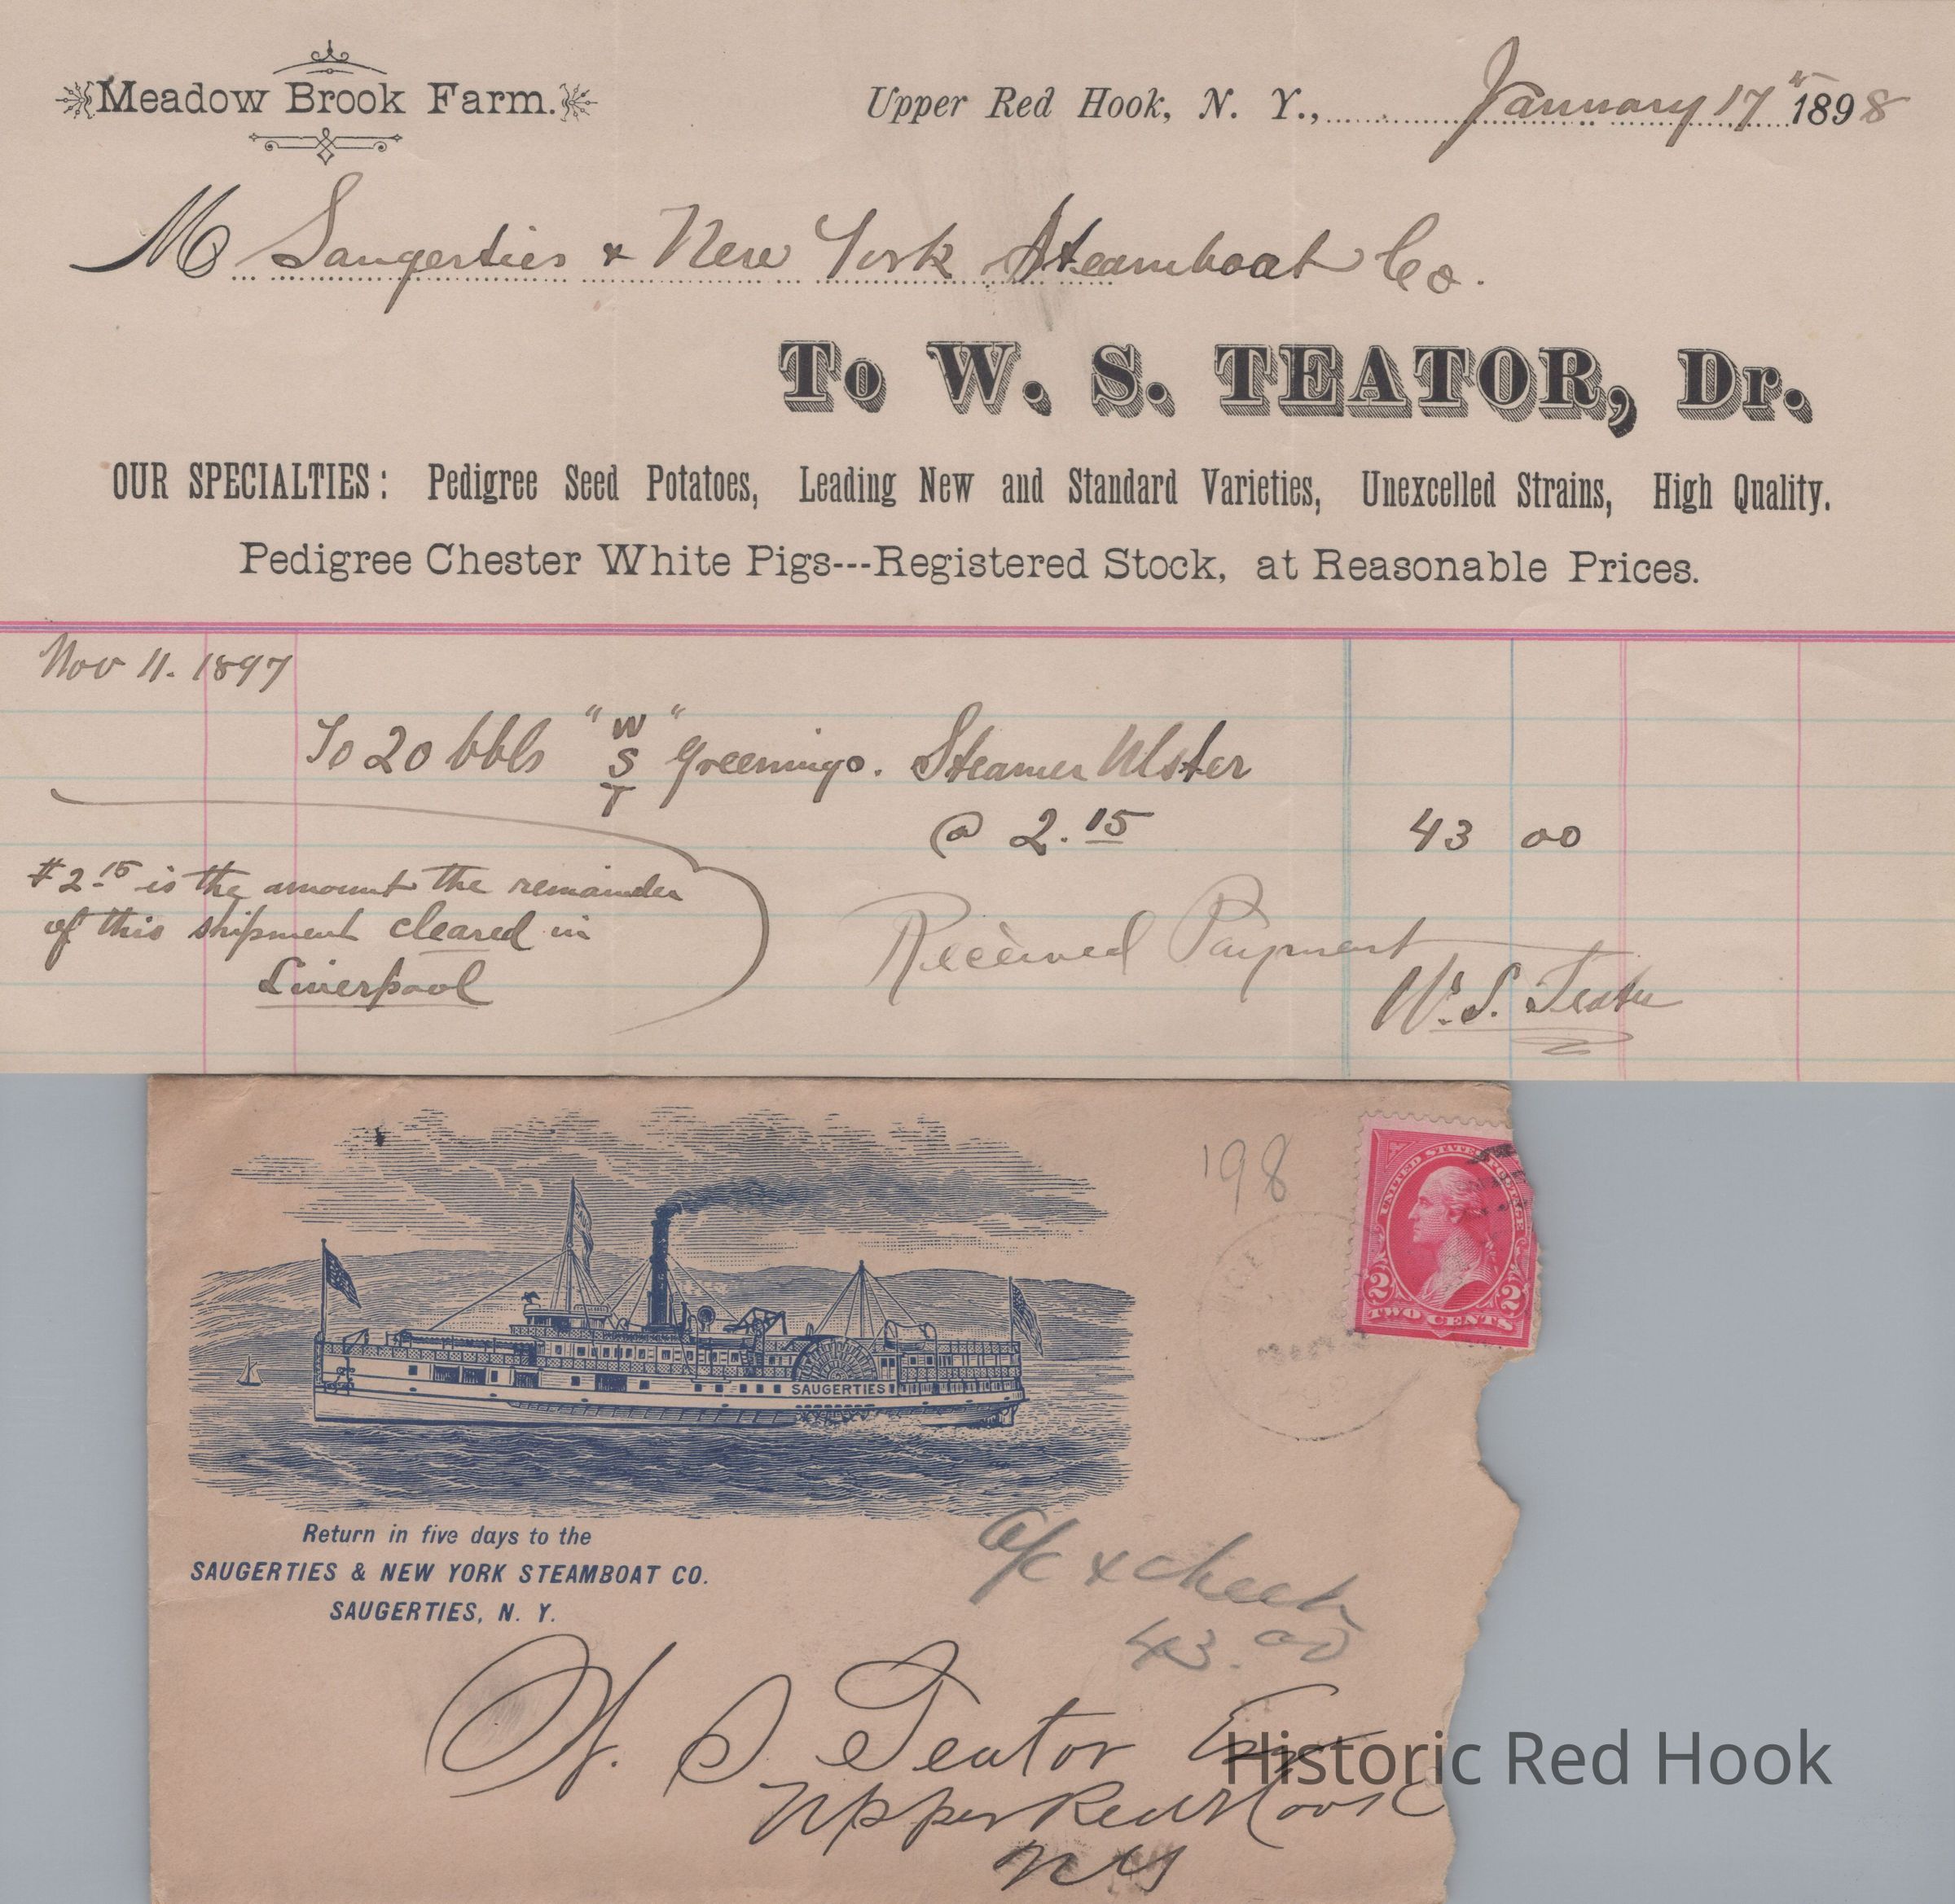 Meadow Brook Farm.
Upper Red Hook, N. Y., January 17th 1898
M Saugerties & New York Steamboat Co.
To W. S. TEATOR, Dr.
OUR SPECIALTIES: Pedigree Seed Potatoes, Leading New and Standard Varieties, Unexcelled Strains, High Quality.
Pedigree Chester White Pigs---Registered Stock, at Reasonable Prices.
Nov 11. 1897
To 20 bbls "W S T" Greenings. Steamer Ulster
@ 2.15 43 00
$2.15 is the amount the remainder
of this shipment cleared in
Liverpool
Received Payment
W. S. Teator
198
UNITED STATES POSTAGE
2 2
TWO CENTS
SAUGERTIES
Return in five days to the
SAUGERTIES & NEW YORK STEAMBOAT CO.
SAUGERTIES, N. Y.
a/c & check
43.00
W. S. Teator Esq
Upper Red Hook
NY
Historic Red Hook